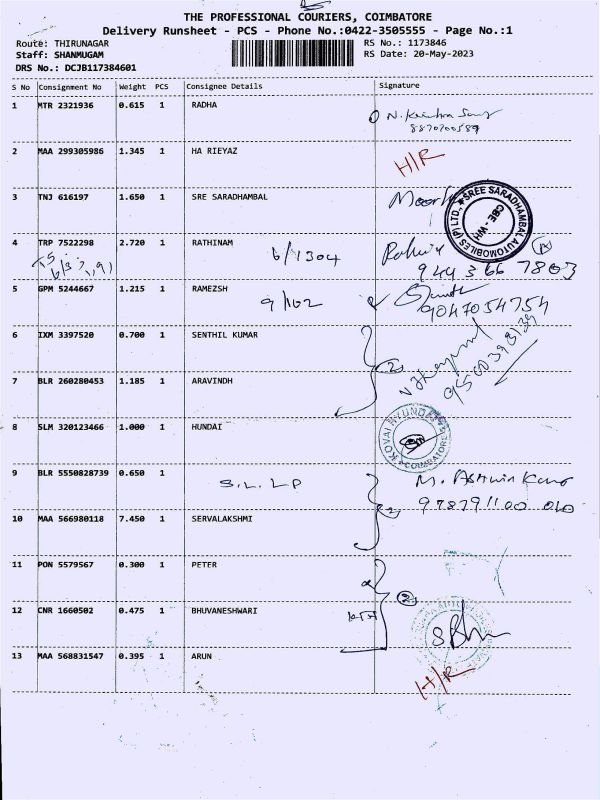 THE PROFESSIONAL COURIERS, COIMBATORE
Delivery Runsheet - PCS - Phone No.:0422-3505555 - Page No.:1
Route: THIRUNAGAR RS No.: 1173846
Staff: SHANMUGAM RS Date: 20-May-2023
DRS No.: DCJB117384601
S No Consignment No Weight PCS Consignee Details Signature
1 MTR 2321936 0.615 1 RADHA
8870700589
2 MAA 299305986 1.345 1 HA RIEYAZ H/R
3 TNJ 616197 1.650 1 SRE SARADHAMBAL
SREE SARADHAMBAL AUTOMOBILES (P) LTD, CBE - WH
4 TRP 7522298 2.720 1 RATHINAM 6/1304
944 366 7803
5 GPM 5244667 1.215 1 RAMEZSH 9/102
9047054754
6 IXM 3397520 0.700 1 SENTHIL KUMAR
2
7 BLR 260280453 1.185 1 ARAVINDH
8 SLM 320123466 1.000 1 HUNDAI
KOVAI HYUNDAI COIMBATORE
9 BLR 5550828739 0.650 1 S.L.L.P
2
10 MAA 566980118 7.450 1 SERVALAKSHMI
11 PON 5579567 0.300 1 PETER
2
12 CNR 1660502 0.475 1 BHUVANESHWARI
13 MAA 568831547 0.395 1 ARUN H/R